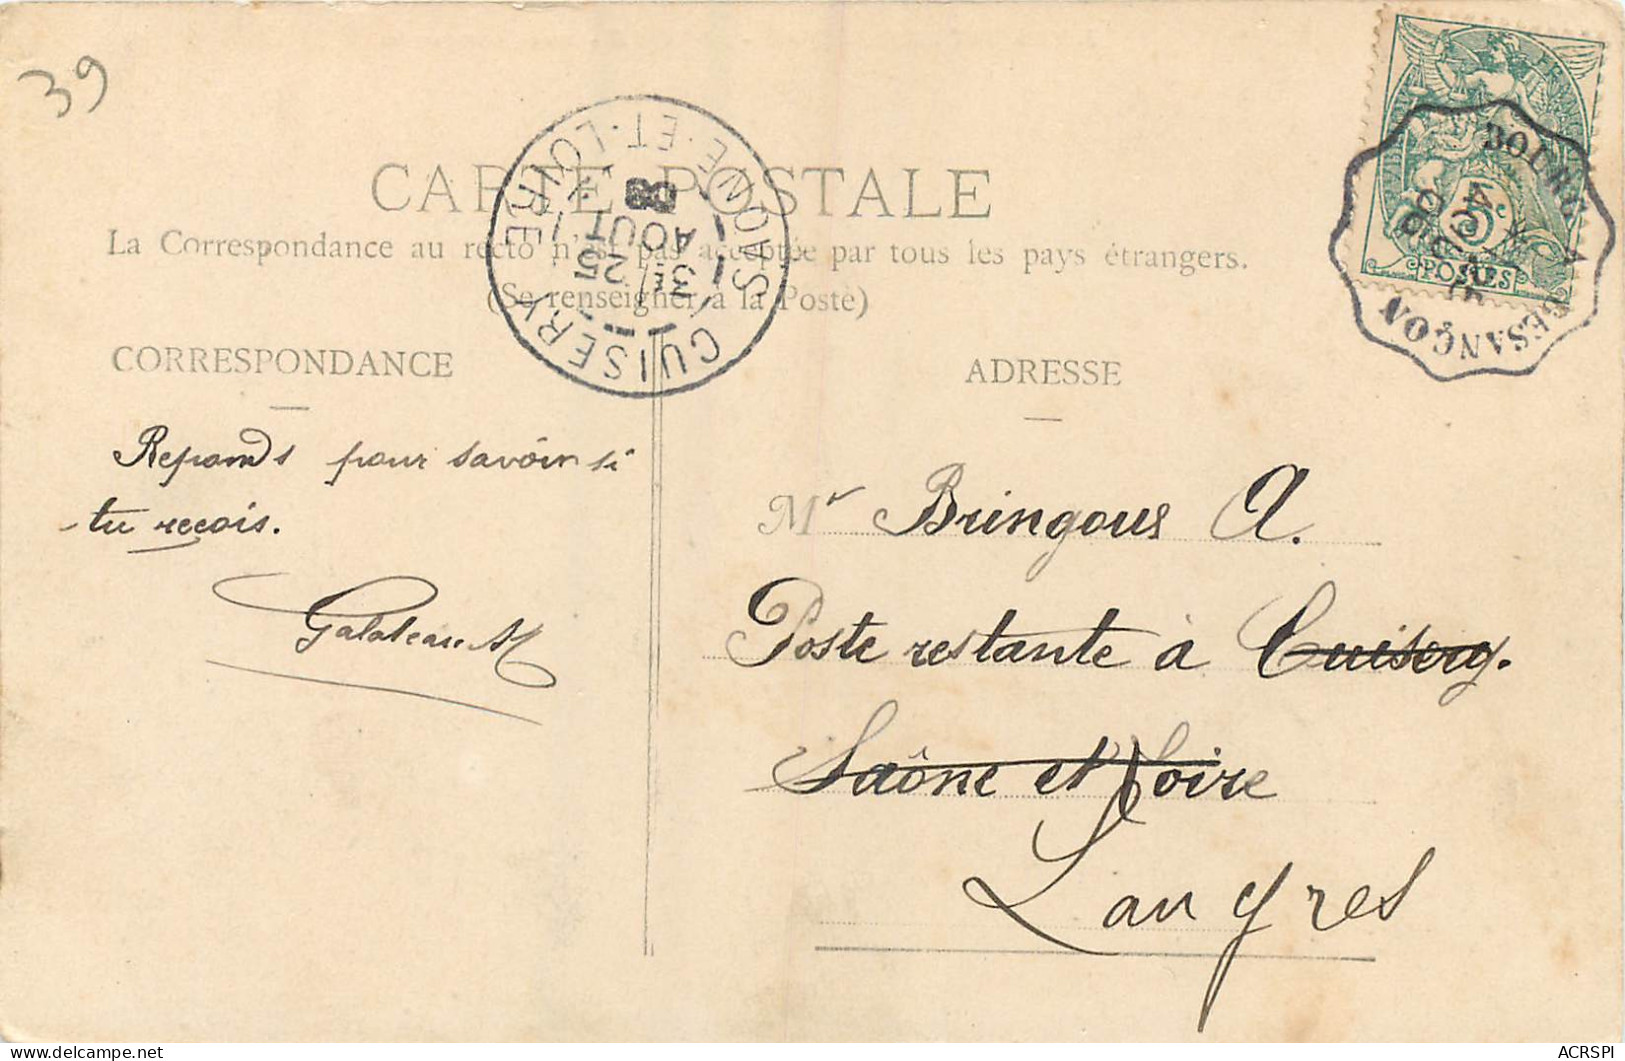 39
CARTE POSTALE
La Correspondance au recto n'est pas acceptée par tous les pays étrangers.
(Se renseigner à la Poste)
CORRESPONDANCE
ADRESSE
Reponds pour savoir si
tu reçois.
Galateau M
Mr Bringous A.
Poste restante à Cuisery.
Saône et Loire
Langres
CUISERY
SAONE-ET-LOIRE
AOUT
BOURG A BESANÇON
5c
POSTES
ACRSPI